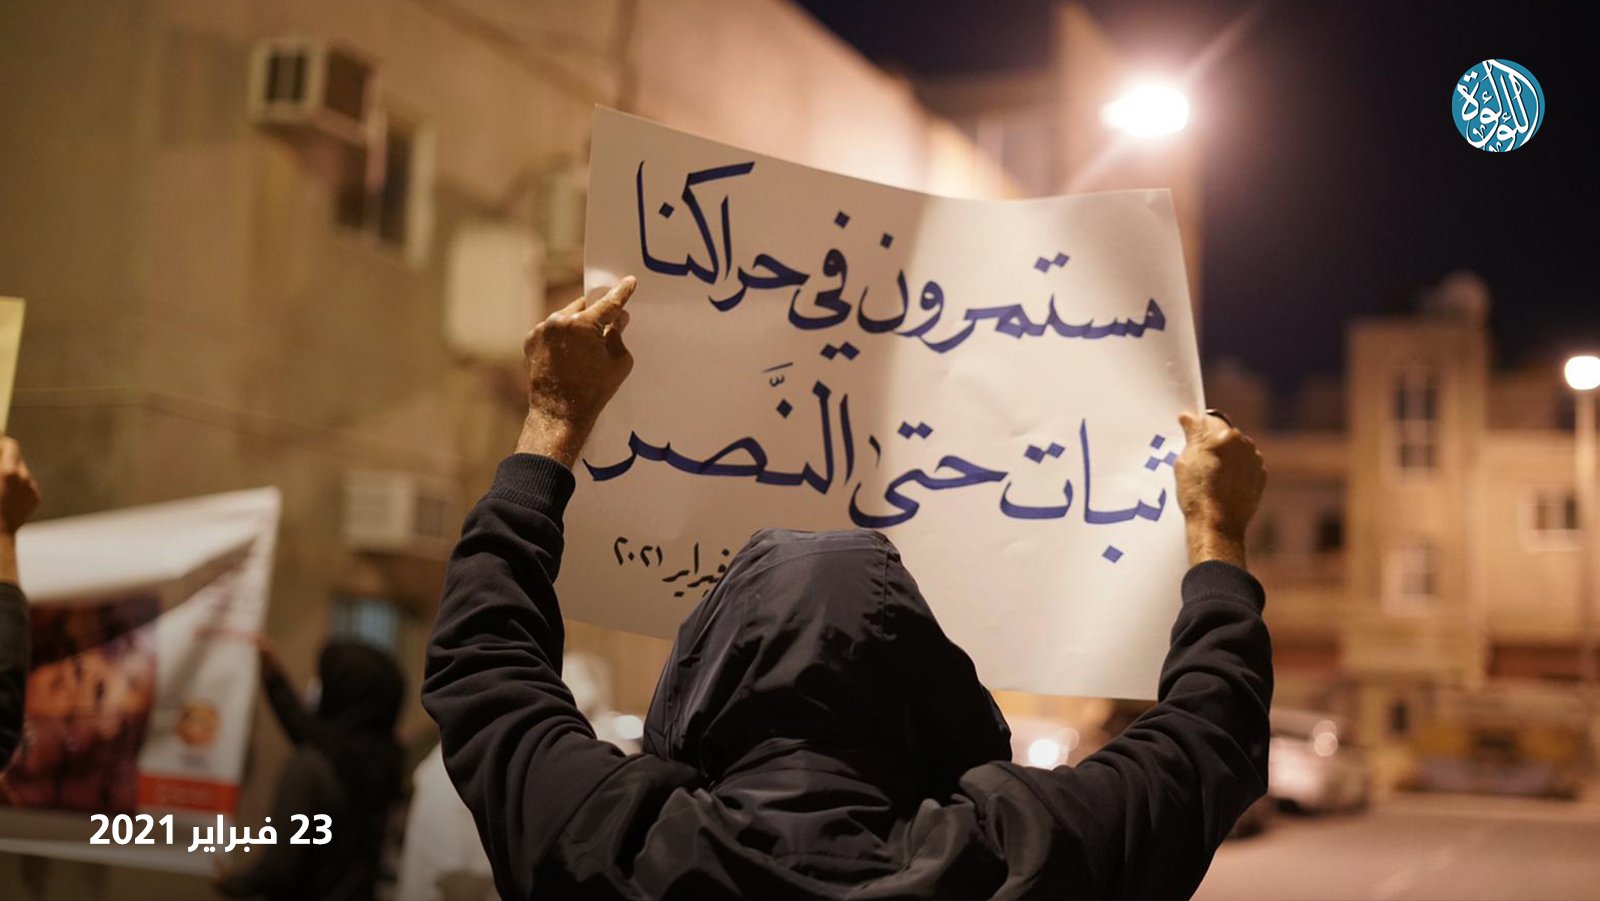 اللؤلؤة
مستمرون في حراكنا
ثبات حتى النَّصر
فبراير ٢٠٢١
23 فبراير 2021